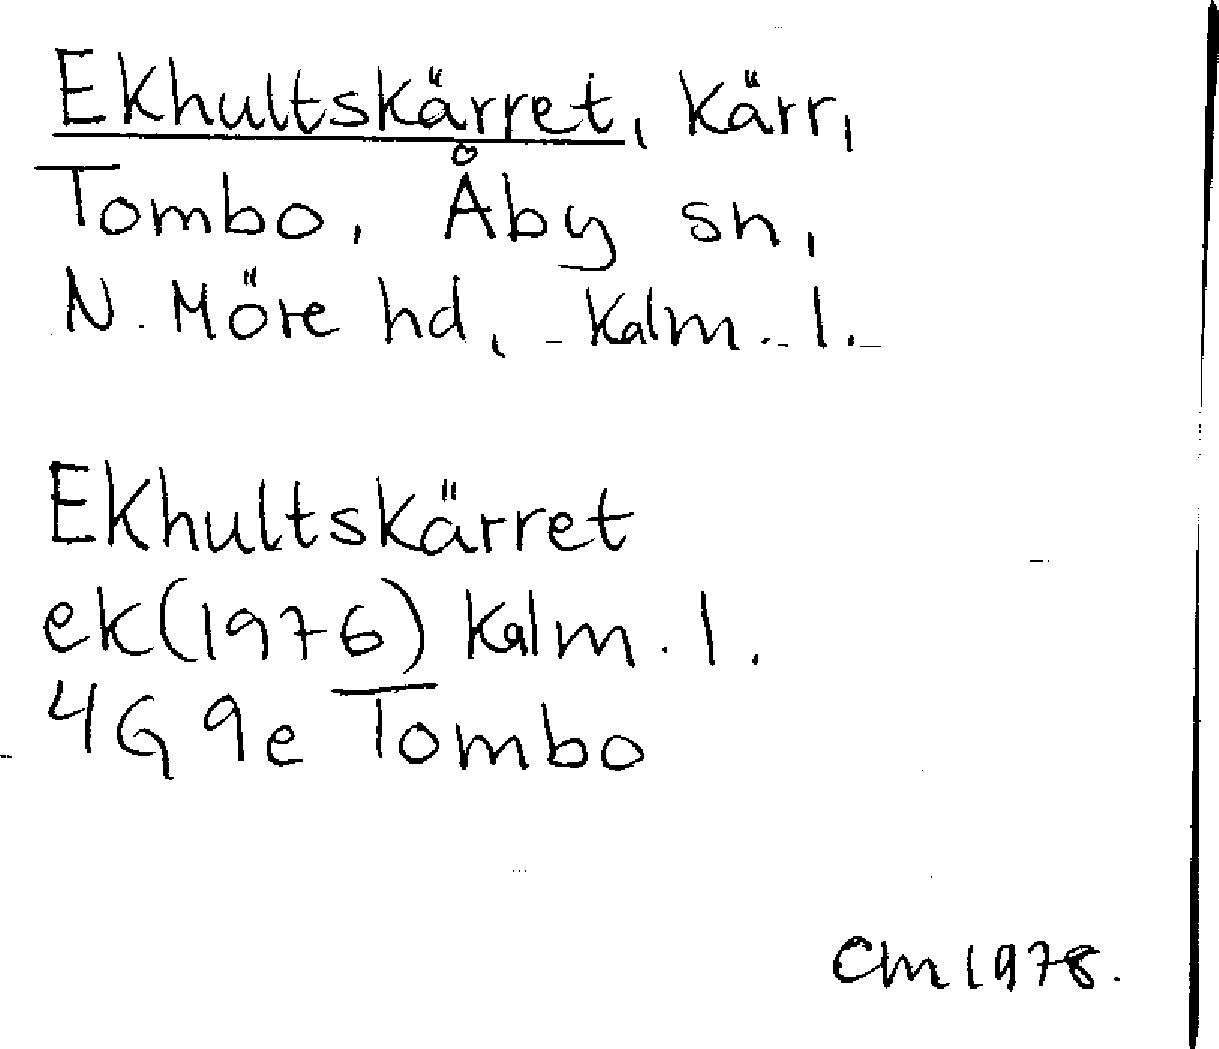 Ekhultskärret, kärr,
Tombo, Åby sn,
N. Möre hd, Kalm. l.
Ekhultskärret
ek(1976) Kalm. l.
4G 9e Tombo
CM 1978.